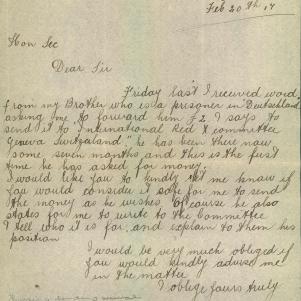 Feb 20th 17
Hon Sec
Dear Sir
Friday last I received word
from my Brother who is a prisoner in Deutschland
asking me to forward him £2 & says to
send it to "International Red X committee
Geneva Switzerland," he has been there now
some seven months and this is the first
time he has asked for money.
I would like you to kindly let me know if
you would consider it safe for me to send
the money as he wishes, of course he also
states for me to write to the Committee
& tell who it is for, and explain to them his
position
I would be very much obliged if
you would kindly advise me
in the matter
& oblige yours truly